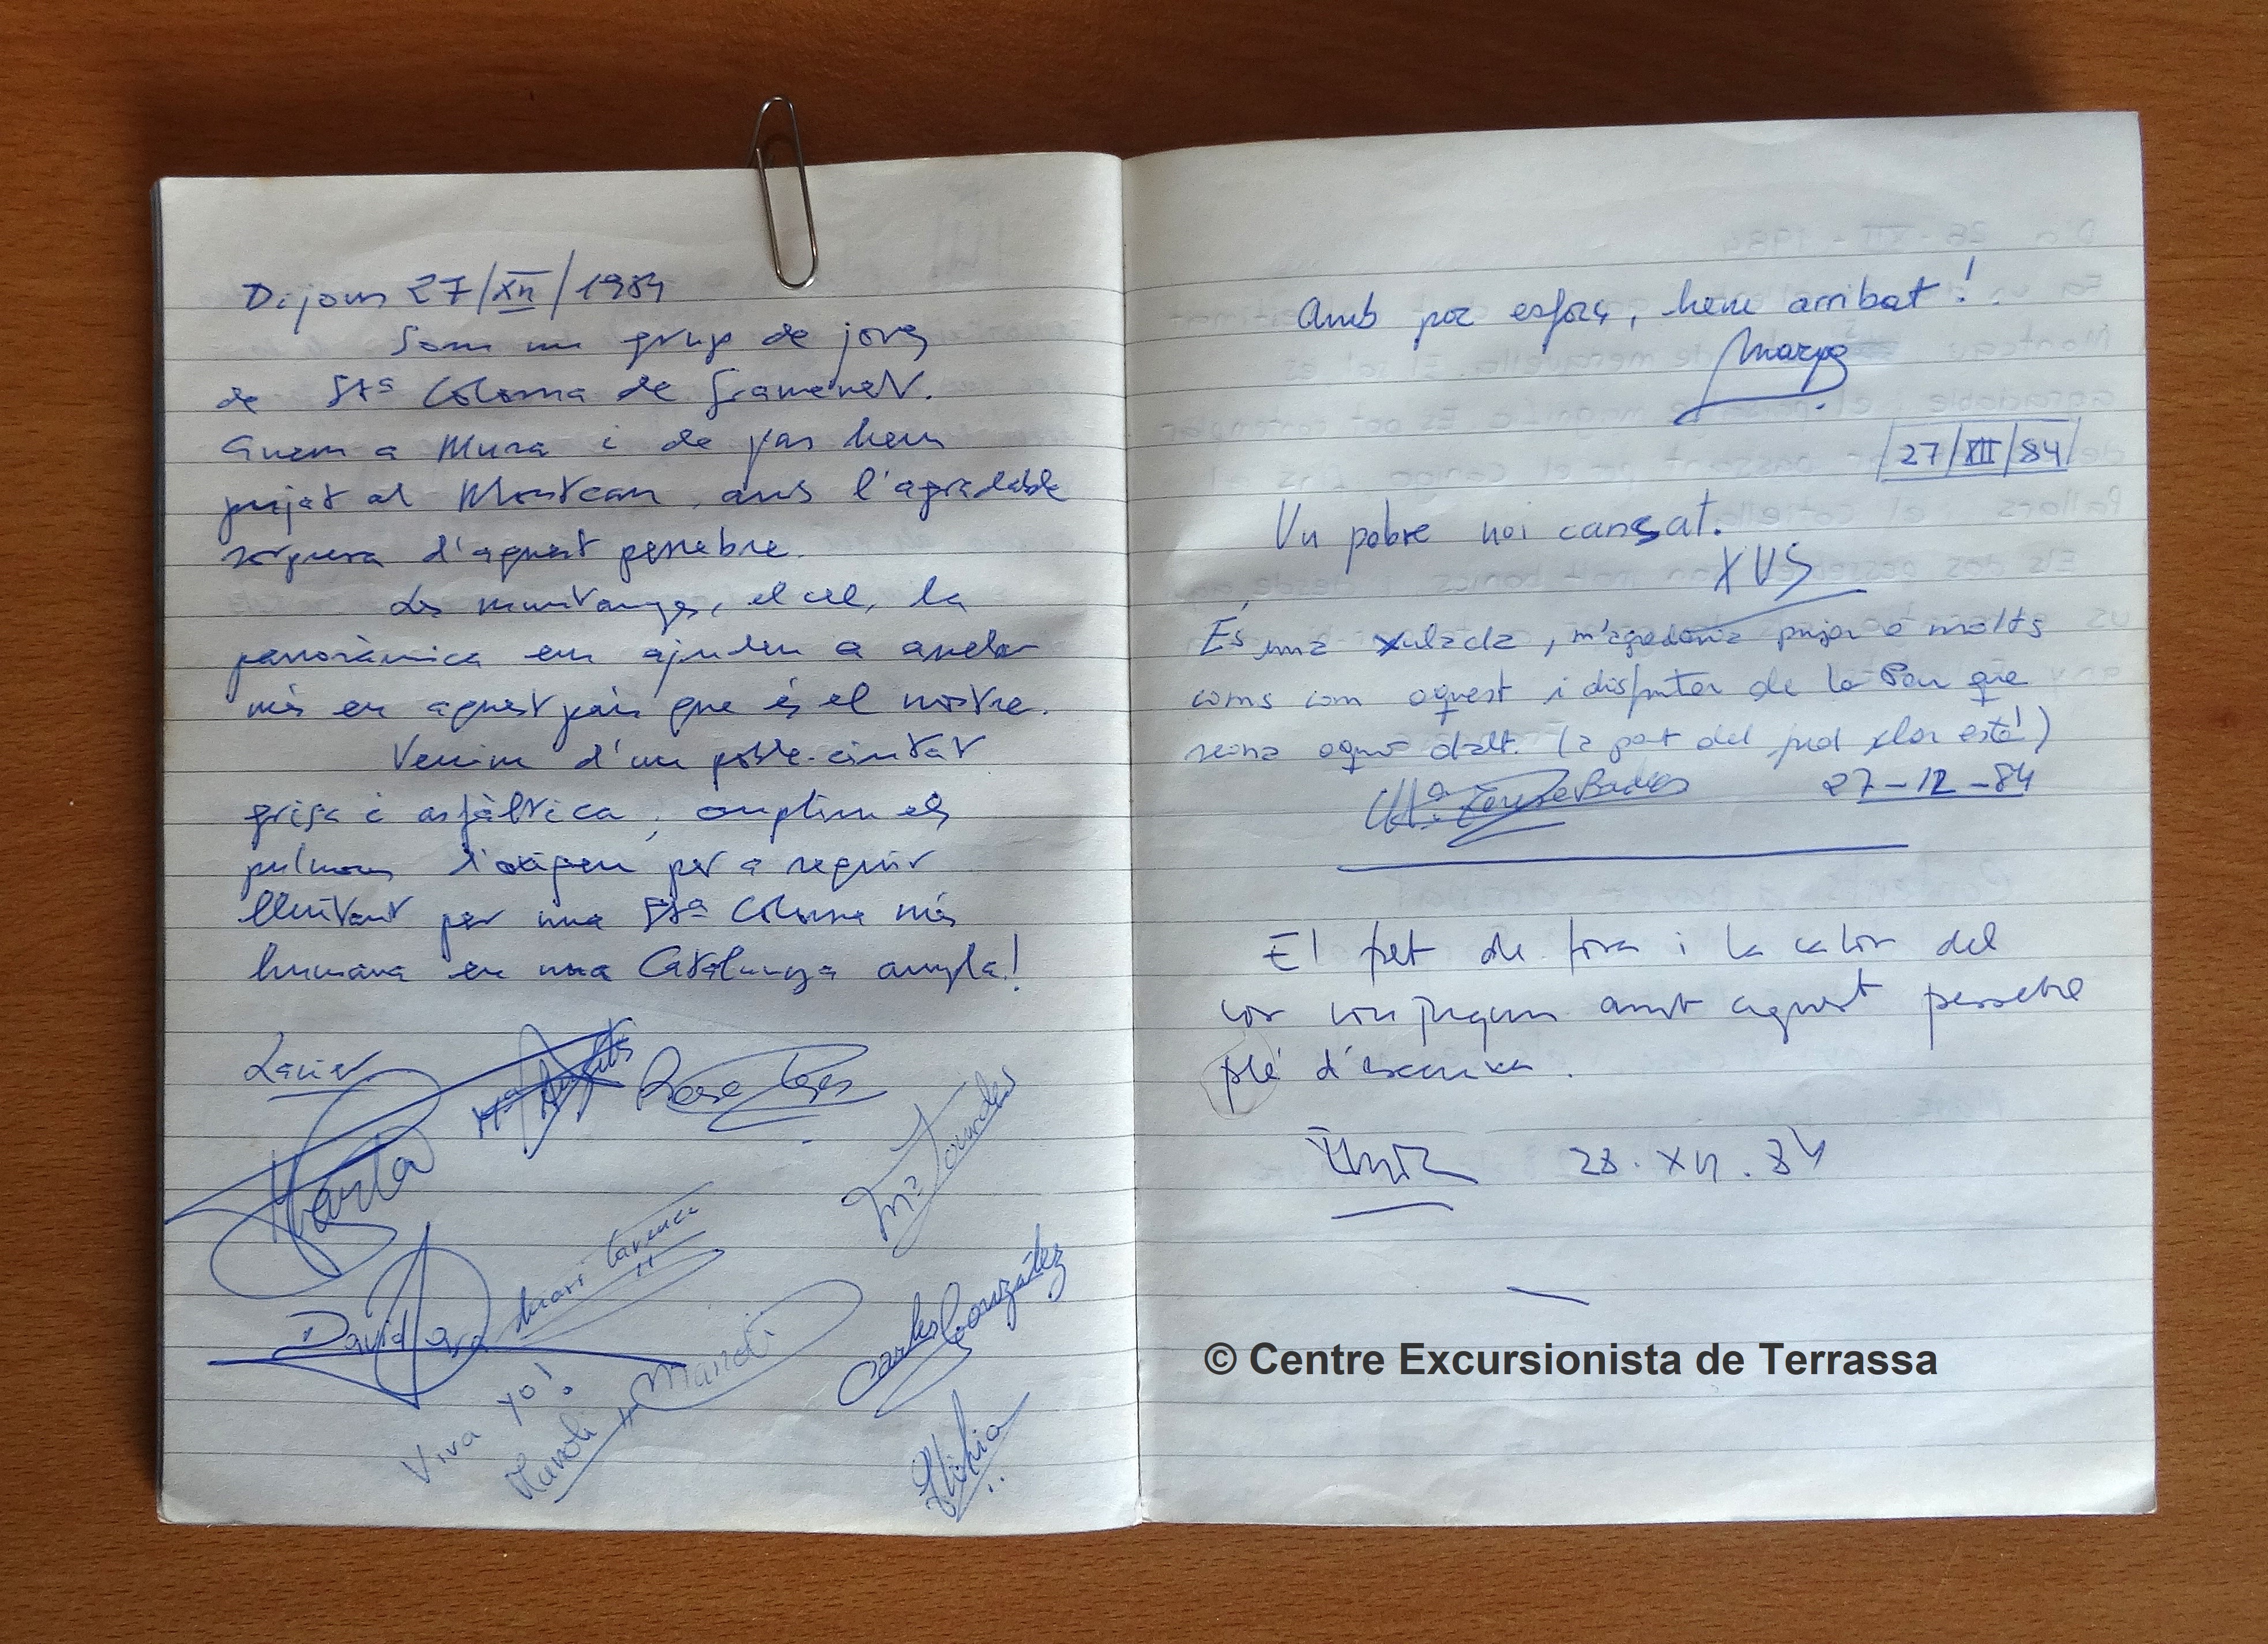 Dijous 27/XII/1984
Som un grup de joves
de Stª Coloma de Gramenet.
Anem a Mura i de pas hem
pujat al Montcau, amb l'agradable
sorpresa d'aquest pessebre.
Les muntanyes, el cel, la
panoràmica ens ajuden a arrelar
més en aquest país que és el nostre.
Venim d'un poble-ciutat
grisa i asfàltica, omplim els
pulmons d'oxigen per a seguir
lluitant per una Stª Coloma més
humana en una Catalunya ampla!
Xavier
Mª Angels
Rosa
Mª Lourdes
Marta
Mari Carmen
David
Carles González
Viva yo!
Manoli
Amb poc esforç, hem arribat!
27/XII/84
Un pobre noi cansat.
XUS
És una xulada, m'agradaria pujar a molts
coms com aquest i disfrutar de la Pau que
reina aquí dalt. (a part del fred clar està!)
Mª Teresa
27-12-84
El fret de fora i la calor del
cor conjuguen amb aquest pessebre
plé d'
28.XII.84
© Centre Excursionista de Terrassa